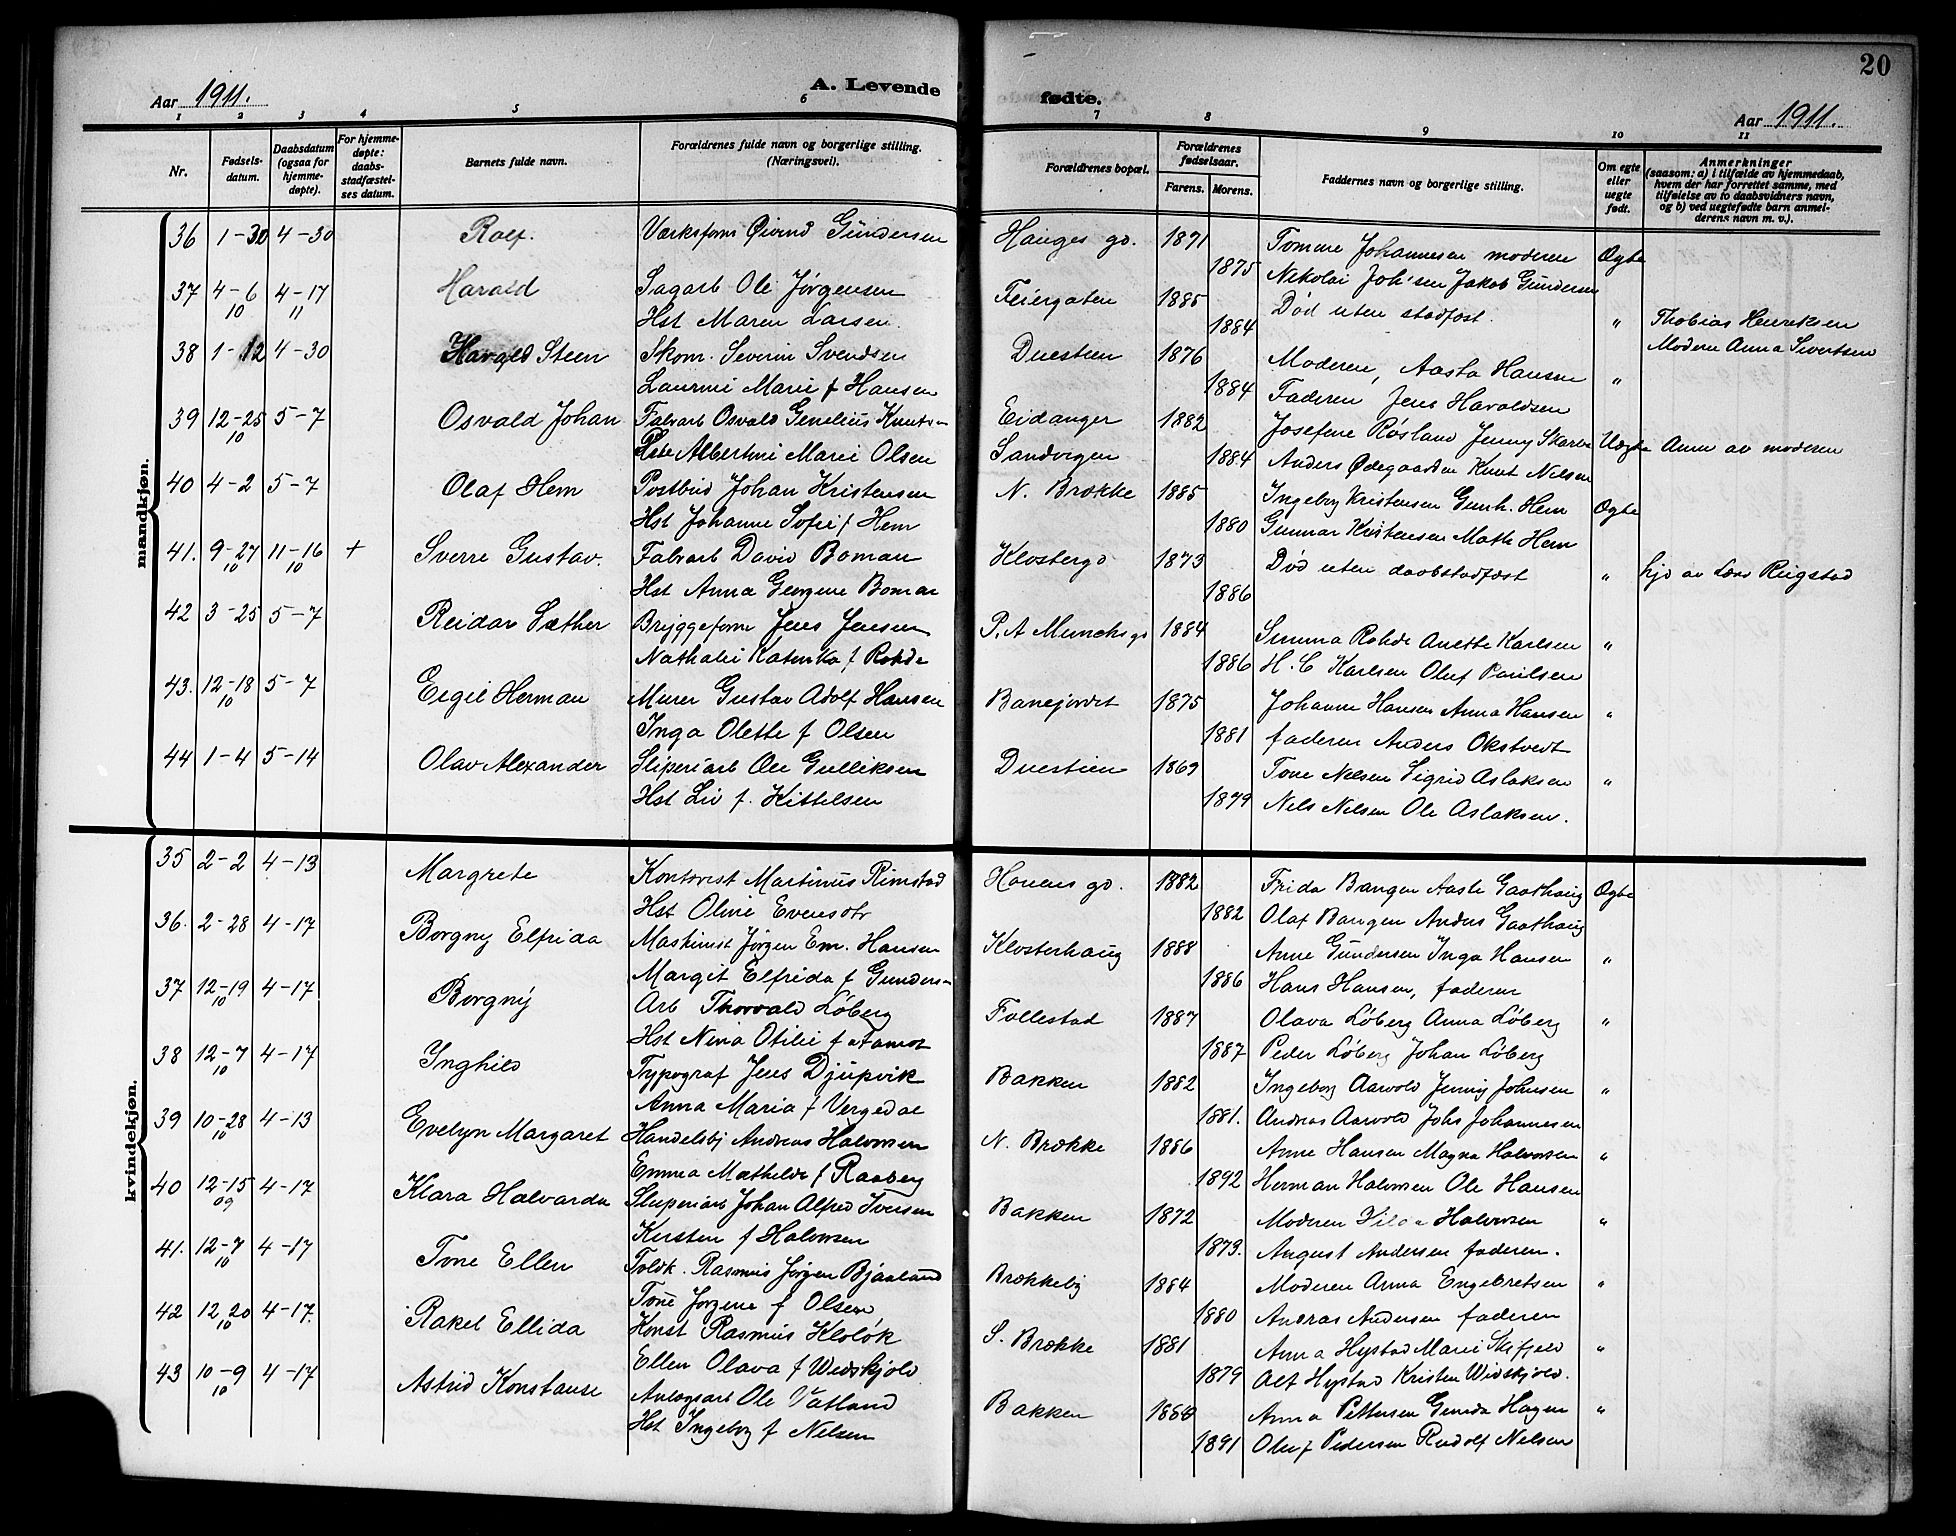 20
Aar 1911.
A. Levende
fødte.
Aar 1911.
1 2 3 4 5 6 7 8 9 10 11
Nr.
Fødsels-
datum.
Daabsdatum
(ogsaa for
hjemme-
døpte).
For hjemme-
døpte:
daabs-
stadfæstel-
ses datum.
Barnets fulde navn.
Forældrenes fulde navn og borgerlige stilling.
(Næringsvei).
Forældrenes bopæl.
Forældrenes
fødselsaar.
Farens. Morens.
Faddernes navn og borgerlige stilling.
Om egte
eller
uegte
født.
Anmerkninger
(saasom: a) i tilfælde av hjemmedaab,
hvem der har forrettet samme, med
tilføielse av to daabsvidners navn,
og b) ved uegtefødte barn anmel-
derens navn m. v.).
mandkjøn.
36 1-30 4-30 Rolf. Værksform Øivind Gundersen Hauges gd. 1871 Tomine Johannesen moderen Ægte
1875 Nikolai Joh'sen Jakob Gundersen
37 4-6 10 4-17 11 Harald Sagarb Ole Jørgensen Feiergaten 1885 Død uten stadfæst. "
Hst Maren Larsen. 1884 Thobias Henriksen
38 1-12 4-30 Harald Steen Skom. Severin Svendsen Duestien 1876 Moderen, Aasta Hansen " Modern Anna Sivertsen
Laurine Marie f Hansen 1884 Faderen Jens Haraldsen
39 12-25 10 5-7 Osvald Johan Fabrarb Osvald Genelius Knuts- Eidanger 1882 Josefine Røsland Jenny Skare Uægte Anm av moderen
Pike Albertine Marie Olsen Sandvigen 1884 Anders Ødegaarden Knut Nilsen
40 4-2 5-7 Olaf Hem Postbud Johan Kristensen N. Brække 1885 Ingeborg Kristensen Gunh. Hem Ægte
Hst Johanne Sofie f Hem 1880 Gunnar Kristensen Math Hem
41. 9-27 10 11-16 10 + Sverre Gustav. Fabrarb David Boman Klostergd 1873 Død uten daabstadfæst " hjd av Læs Rugstad
Hst Anna Georgine Boman 1886
42 3-25 5-7 Reidar Sæther Bryggeform Jens Jensen P. A Munchs gd 1884 Simma Rohde Anette Karlsen "
Nathalie Katinka f Rohde 1886 H. C Karlsen Oluf Paulsen
43. 12-18 10 5-7 Eigil Herman Murer Gustav Adolf Hansen Banejordet 1875 Johanne Hansen Anna Hansen "
Inga Olette f Olsen 1881 faderen Anders Okstvedt
44 1-4 5-14 Olav Alexander Sliperiarb Ole Gulliksen Duestien 1869 Tone Nilsen Sigrid Aslaksen "
Hst Liv f. Kittelsen 1879 Nils Nilsen Ole Aslaksen.
kvindekjøn.
35 2-2 4-13 Margrete Kontorist Martinus Rimstad Hauens gd. 1882 Frida Bangen Aaste Gaathaug Ægte
Hst Oline Evensdtr 1882 Olaf Bangen Anders Gaathaug
36. 2-28 4-17 Borgny Elfrida Maskinist Jørgen Em. Hansen Klosterhaug 1888 Anne Gundersen Inga Hansen "
Margit Elfrida f Gunders- 1886 Hans Hansen, faderen
37 12-19 10 4-17 Borgny Arb Thorvald Løberg Follestad 1887 Olava Løberg Anna Løberg "
Hst Nina Otilie f Aamot 1887 Peder Løberg Johan Løberg
38 12-7 10 4-17 Inghild Typograf Jens Djupvik Bakken 1882 Ingeborg Aarvold Jenny Johnsen "
Anna Maria f Vergedal 1881. Andreas Aarvold Johs Johannesen
39 10-28 10 4-13 Evelyn Margaret Handelsbj Andreas Halvorsen N. Brække 1886 Anne Hansen Magna Halvorsen "
Emma Mathilde f Raaberg 1892 Herman Halvorsen Ole Hansen
40 12-15 09 4-17 Klara Halvarda Sliperiarb Johan Alfred Iversen Bakken 1872 Moderen Hilda Halvorsen "
Kirsten f Halvorsen 1873. August Andersen faderen.
41. 12-7 10 4-17 Tone Ellen Toldk. Rasmus Jørgen Bjaaland Brækkeby 1884 Moderen Anna Engebretsen "
Tone Jørgine f Olsen 1880 Andreas Andersen faderen
42 12 20 10 4-17. Rakel Ellida Konst Rasmus Kloløk S. Brække 1881 Anna Hystad Marie Skifjeld "
Ellen Olava f Widskjold 1879 Alf Hystad Kristen Widskjold.
43 10-9 10 4-17 Astrid Konstanse Anlægsarb Ole Vatland Bakken Anna Pettersen Gunda Hagen "
Hst Ingeborg f Nilsen 1891 Oluf Pedersen Rudolf Nilsen